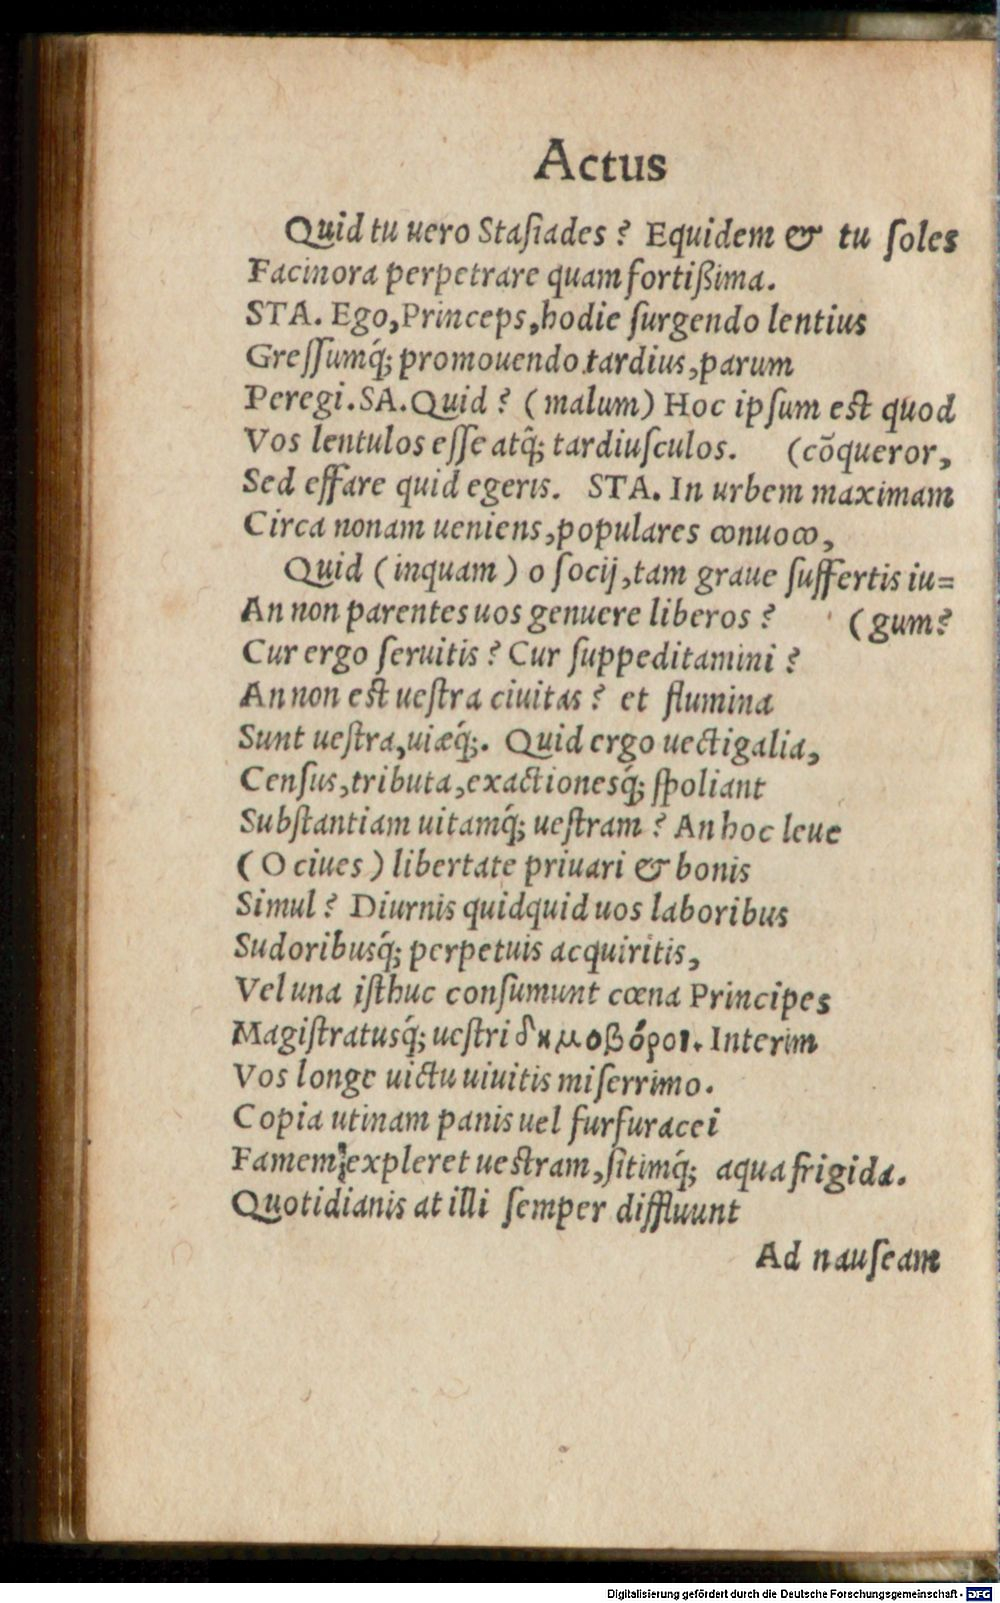 Actus
Quid tu uero Staſiades? Equidem & tu ſoles
Facinora perpetrare quam fortißima.
STA. Ego, Princeps, hodie ſurgendo lentius
Greſſumq́; promouendo tardius, parum
Peregi. SA. Quid? (malum) Hoc ipſum eſt quod
Vos lentulos eſſe atq̂; tardiuſculos. (cõqueror,
Sed effare quid egeris. STA. In urbem maximam
Circa nonam ueniens, populares conuoco,
Quid (inquam) o ſocij, tam graue ſuffertis iu=
An non parentes uos genuere liberos? (gum?
Cur ergo ſeruitis? Cur ſuppeditamini?
An non eſt ueſtra ciuitas? et flumina
Sunt ueſtra, uiæq́;. Quid ergo uectigalia,
Cenſus, tributa, exactionesq́; ſpoliant
Subſtantiam uitamq́; ueſtram? An hoc leue
(O ciues) libertate priuari & bonis
Simul? Diurnis quidquid uos laboribus
Sudoribusq́; perpetuis acquiritis,
Vel una iſthuc conſumunt cœna Principes
Magiſtratusq́; ueſtri δημοβόροι. Interim
Vos longe uictu uiuitis miſerrimo.
Copia utinam panis uel furfuracei
Famem expleret ueſtram, ſitimq́; aqua frigida.
Quotidianis at illi ſemper diffluunt
Ad nauſeam
Digitalisierung gefördert durch die Deutsche Forschungsgemeinschaft - DFG